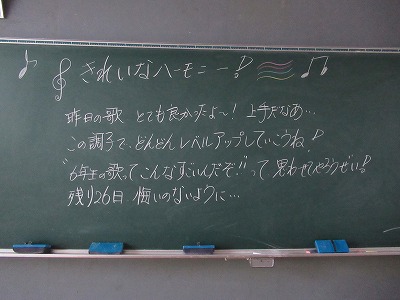 きれいなハーモニー!
昨日の歌 とても良かったよ〜! 上手だなあ…
この調子で、どんどんレベルアップしていこうね!
"6年生の歌ってこんなすごいんだぞ!"って 思わせてやろうぜぃ!
残り26日 悔いのないように…